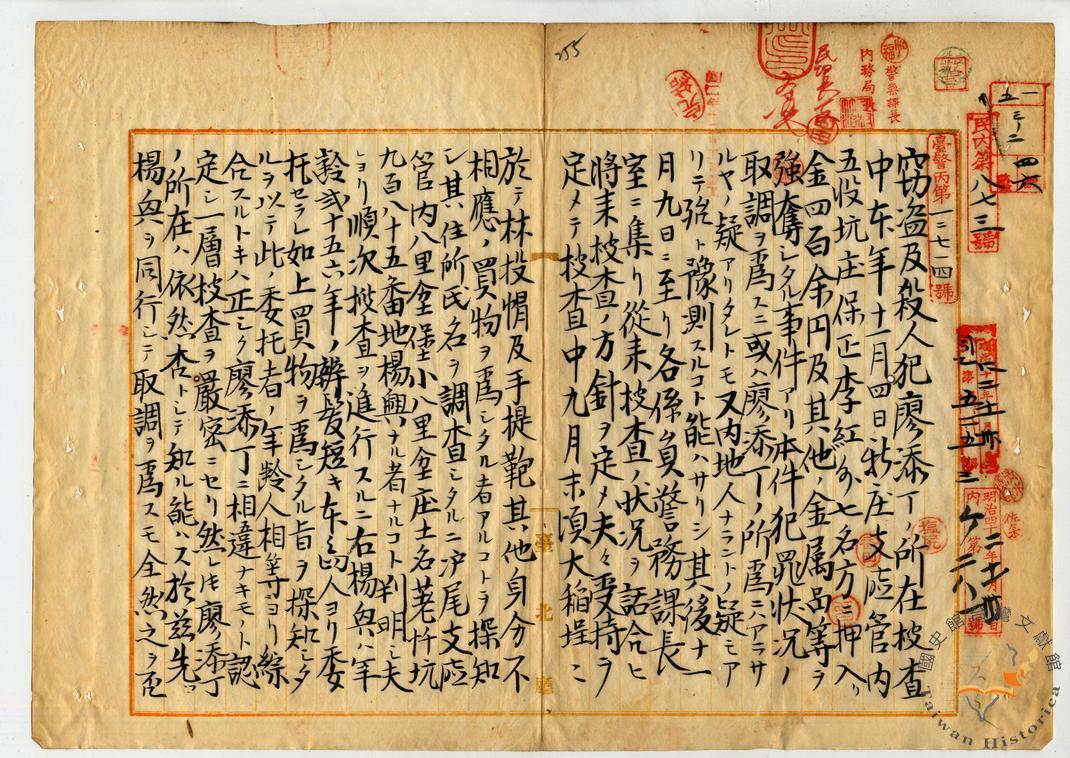 臺警丙第一二七一四號
窃盗及殺人犯廖添丁ノ所在捜査
中本年十一月四日新庄支廳管内
五股坑庄保正李紅外七名方ニ押入リ
金四百余円及其他ノ金属品等ヲ
強奪シタル事件アリ本件犯罪状況ノ
取調ヲ為スニ或ハ廖添丁ノ所為ニハアラサ
ルヤノ疑アリタレトモ又内地人ナラントノ疑モア
リテ強ト豫測スルコト能ハサリシ其後十一
月九日ニ至リ各係員警務課長
室ニ集リ從来捜査ノ状況ヲ話合ヒ
将来捜査ノ方針ヲ定メ夫々受持ヲ
定メテ捜査中九月末頃大稲埕ニ
於テ林投帽及手提鞄其他身分不
相應ノ買物ヲ為シタル者アルコトヲ探知
シ其住所氏名ヲ調査シタルニ滬尾支廳
管内八里坌堡小八里坌庄土名荖阡坑
九百八十五番地楊興ナル者ナルコト判明シ夫
ヨリ順次捜査ヲ進行スルニ右楊興ハ年
齢弐十五六年ノ辮髪短キ本島人ヨリ委
托セラレ如上ノ買物ヲ為シタル旨ヲ探知シタ
ルヲ以テ此ノ委托者ノ年齢人相等ヨリ綜
合スルトキハ正シク廖添丁ニ相違ナキモノト認
定シ一層捜査ヲ嚴密ニセリ然レトモ廖添丁
ノ所在ハ依然杳トシテ知ル能ハス於茲先ツ
楊興ヲ同行シテ取調ヲ為スモ全然之ヲ否
臺北廳
255
民内第八七三號
警察課長
内務局長
國史館臺灣文獻館
Taiwan Historica